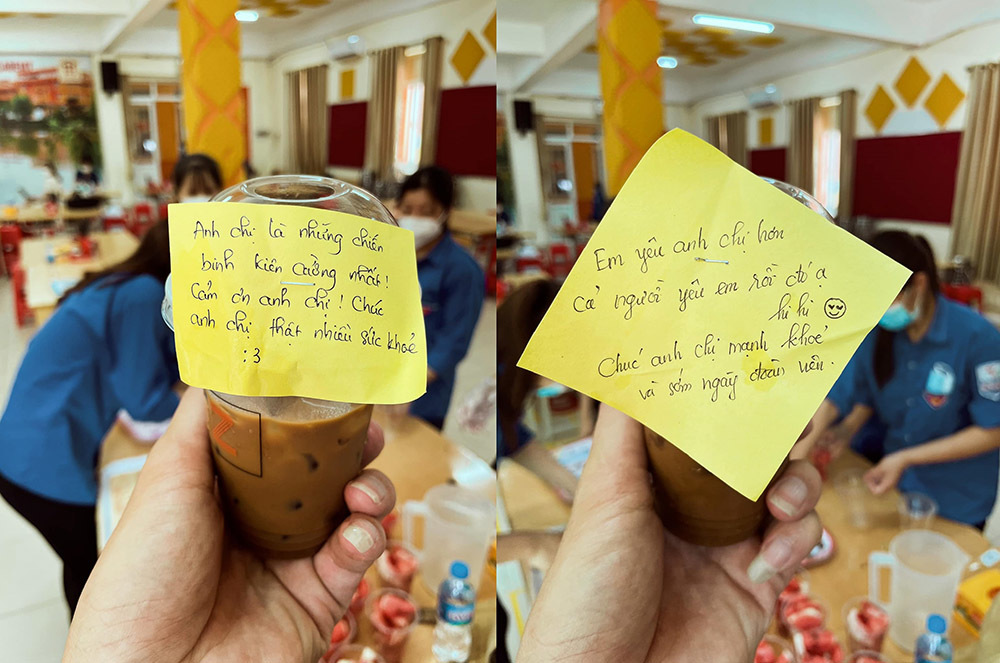 Anh chị là những chiến
binh kiên cường nhất!
Cảm ơn anh chị! Chúc
anh chị thật nhiều sức khoẻ
:3
Em yêu anh chị hơn
cả người yêu em rồi đó ạ
hi hi
Chúc anh chị mạnh khoẻ
và sớm ngày đoàn viên.